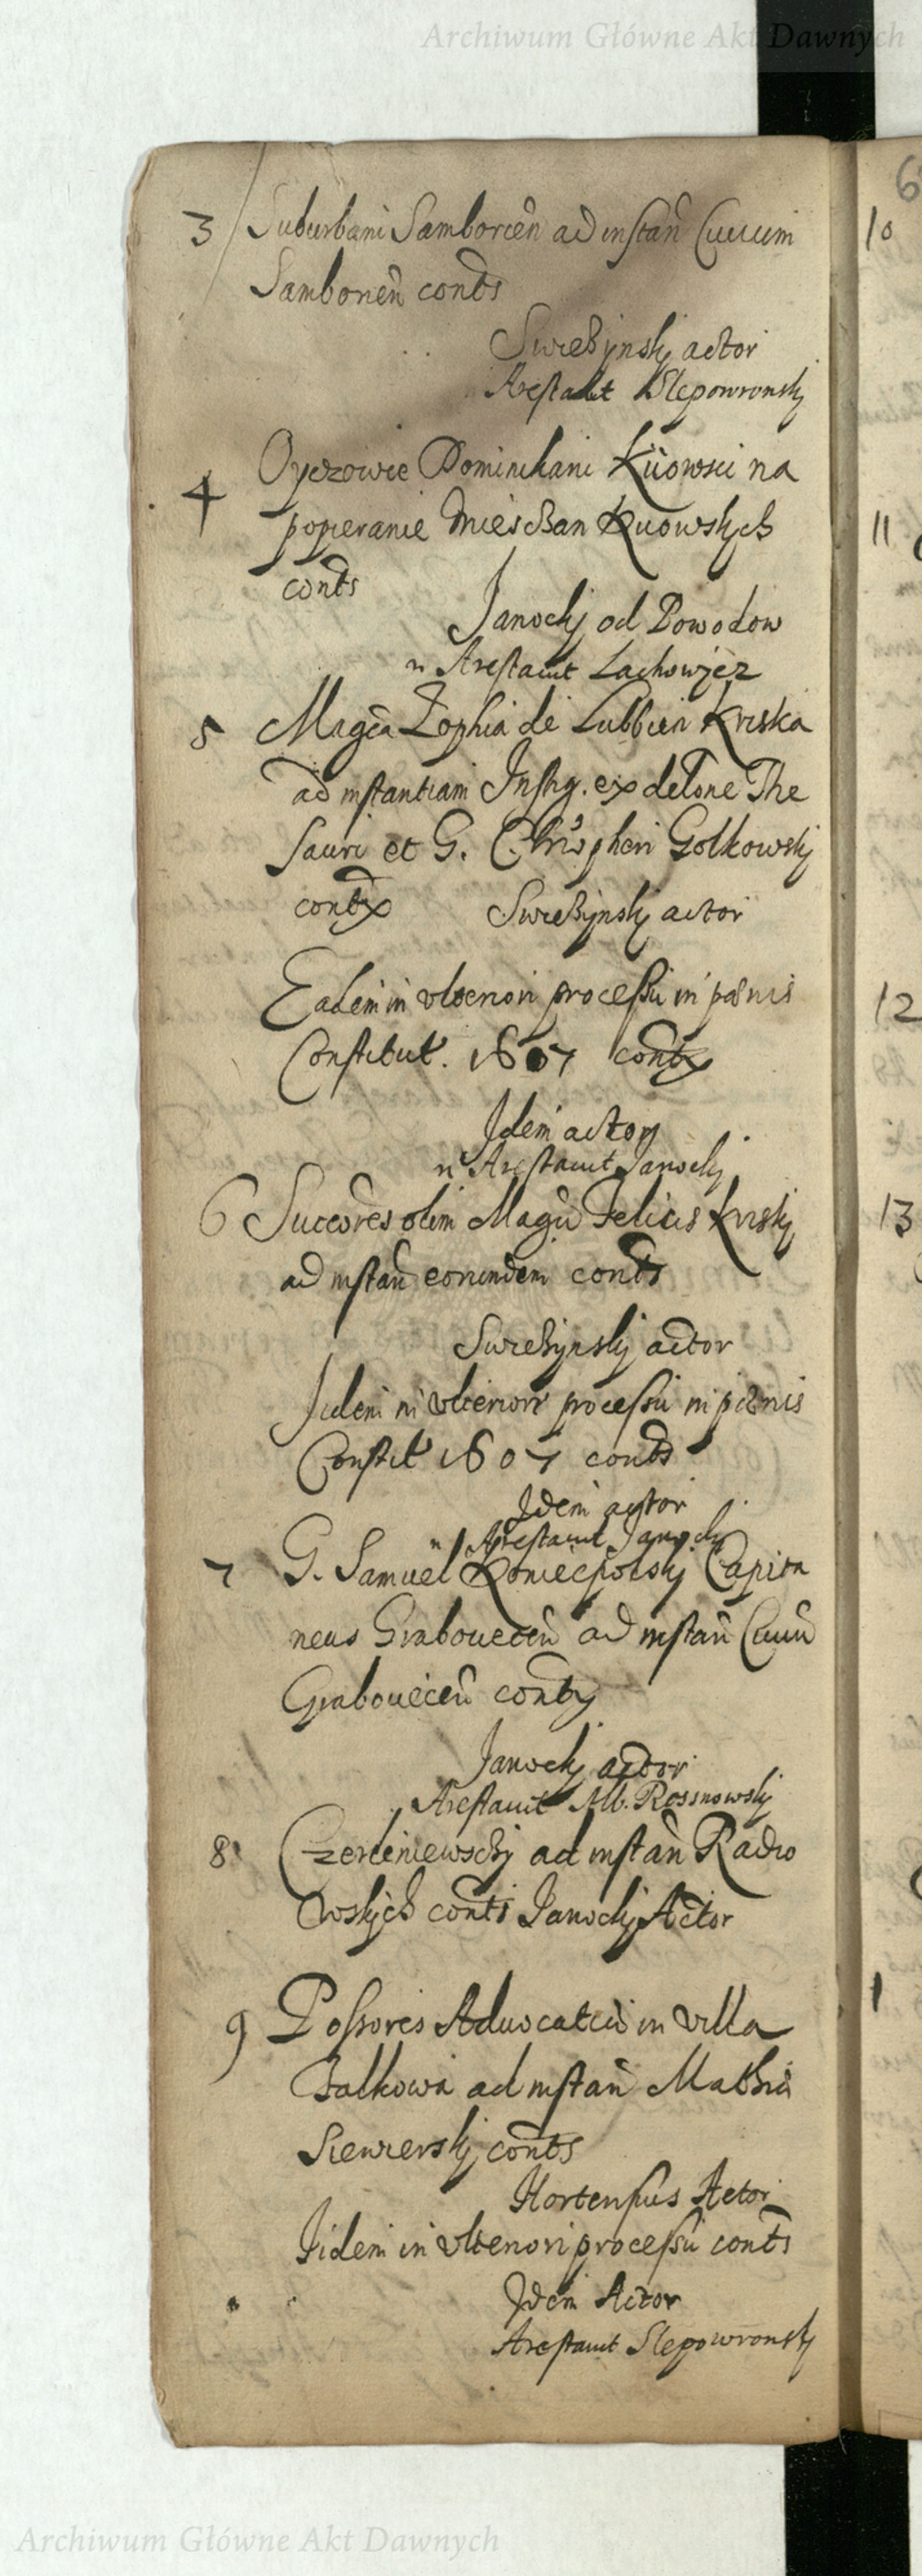 Archiwum Główne Akt Dawnych
6
3 Suburbani Samborien̄ ad instan̄ Ciuium
10
Samborien̄ cont̄s
Swiebÿnskj actor
Arestauit Slepowronskj
4 Oÿczowie Dominikani Kiiowsci na
popieranie Mieszczan Kiiowskych
11
cont̄s
Janockj od Powodow
n Arestauit Lachowjcz
5 Magc̄a Zophia de Lubbien Kriska
ad instantiam Instig. ex delōne The
sauri et G. Chrisp̄heri Golkowskj
contx Swiebÿnskj actor
Eadem in vlteriori processu in pænis
12
Constitut. 1607 contx
Idem actor
n Arestauit Janockj
6 Succōres olim Magci Felicis Kriskj
13
ad instan̄ eorundem cont̄s
Swiebÿnskj actor
Iidem in vlteriori processu in pænis
Constit 1607 cont̄s
Idem actor
n Arestauit Janockj
7 G. Samuel Koniecpolskj Capita
neus Grabouecen̄ ad instan̄ Ciuiū
Grabouecen̄ contx
Janockj actor
Arestauit Alb. Rossnowskj
8 Czerleniewsckj ad instan̄ Radio
wskych cont̄s Janockj Actor
9 Possores Aduocatiæ in villa
1
Zalkowa ad instan̄ Mathiæ
Siewierskj cont̄s
Hortensius Actor
Iidem in vlteriori processu cont̄s
Idem Actor
Arestauit Slepowronskj
Archiwum Główne Akt Dawnych